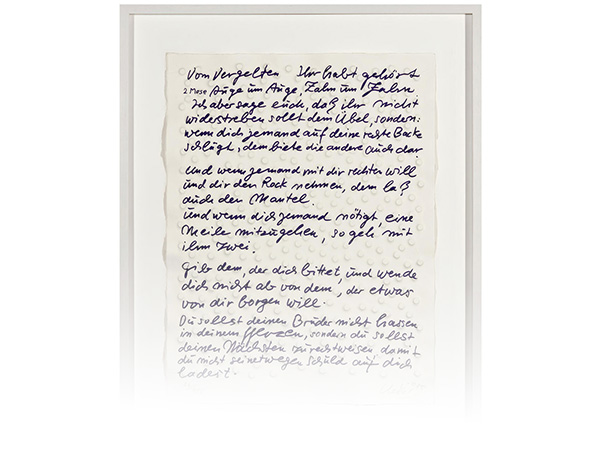 Vom Vergelten Ihr habt gehört
2 Mose Auge um Auge, Zahn um Zahn.
Ich aber sage euch, daß ihr nicht
widerstreben sollt dem Übel, sondern:
wenn dich jemand auf deine rechte Backe
schlägt, dem biete die andere auch dar.
Und wenn jemand mit dir rechten will
und dir den Rock nehmen, dem laß
auch den Mantel.
Und wenn dich jemand nötigt, eine
Meile mitzugehen, so geh mit
ihm zwei.
Gib dem, der dich bittet, und wende
dich nicht ab von dem, der etwas
von dir borgen will.
Du sollst deinen Bruder nicht hassen
in deinem Herzen, sondern du sollst
deinen Nächsten zurechtweisen damit
du nicht seinetwegen Schuld auf dich
ladest.